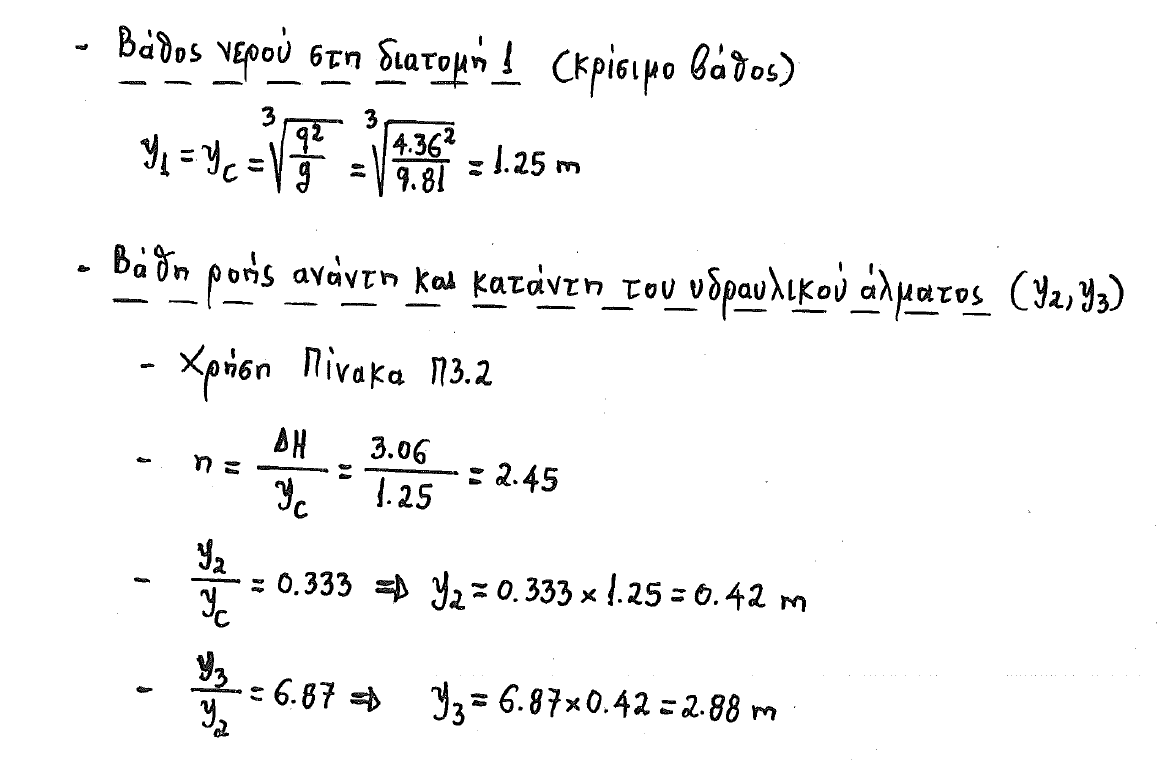 - Βάθος νερού στη διατομή 1 (κρίσιμο βάθος)
y₁ = y_c = ∛(q²/g) = ∛(4.36²/9.81) = 1.25 m
- Βάθη ροής ανάντη και κατάντη του υδραυλικού άλματος (y₂, y₃)
- Χρήση Πίνακα Π3.2
- n = ΔH/y_c = 3.06/1.25 = 2.45
- y₂/y_c = 0.333 ⇒ y₂ = 0.333 × 1.25 = 0.42 m
- y₃/y₂ = 6.87 ⇒ y₃ = 6.87 × 0.42 = 2.88 m